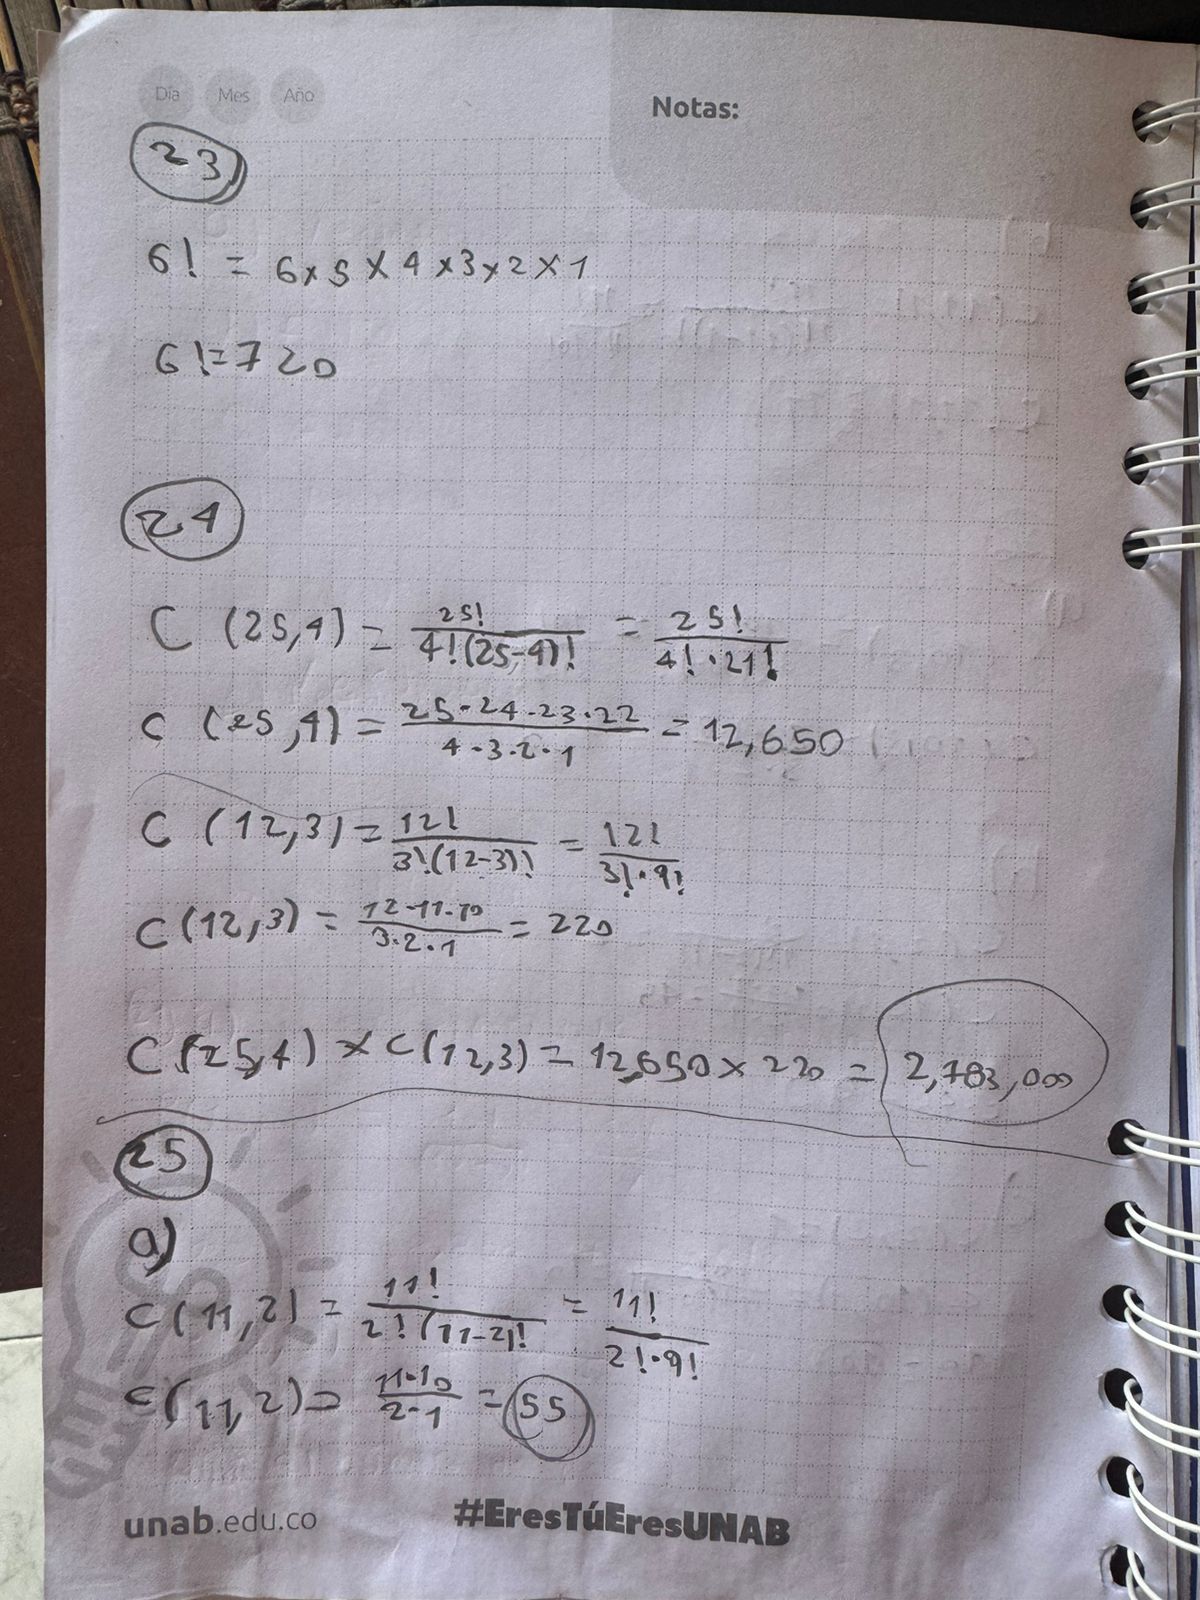 Día Mes Año
Notas:
23
6! = 6 x 5 x 4 x 3 x 2 x 1
6! = 720
24
C (25,4) = 25! / 4!(25-4)! = 25! / 4! · 21!
C (25,4) = 25·24·23·22 / 4·3·2·1 = 12,650
C (12,3) = 12! / 3!(12-3)! = 12! / 3!·9!
C (12,3) = 12·11·10 / 3·2·1 = 220
C (25,4) x C (12,3) = 12,650 x 220 = 2,783,000
25
a)
C (11,2) = 11! / 2!(11-2)! = 11! / 2!·9!
C (11,2) = 11·10 / 2·1 = 55
unab.edu.co
#EresTúEresUNAB